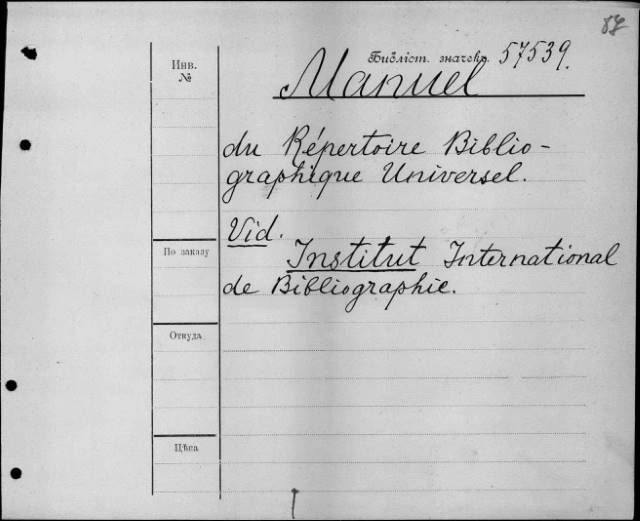 87
Инв.
№
Библіот. значекъ 57539.
Manuel
du Répertoire Biblio-
graphique Universel.
Vid.
Institut International
de Bibliographie.
По заказу
Откуда
Цѣна